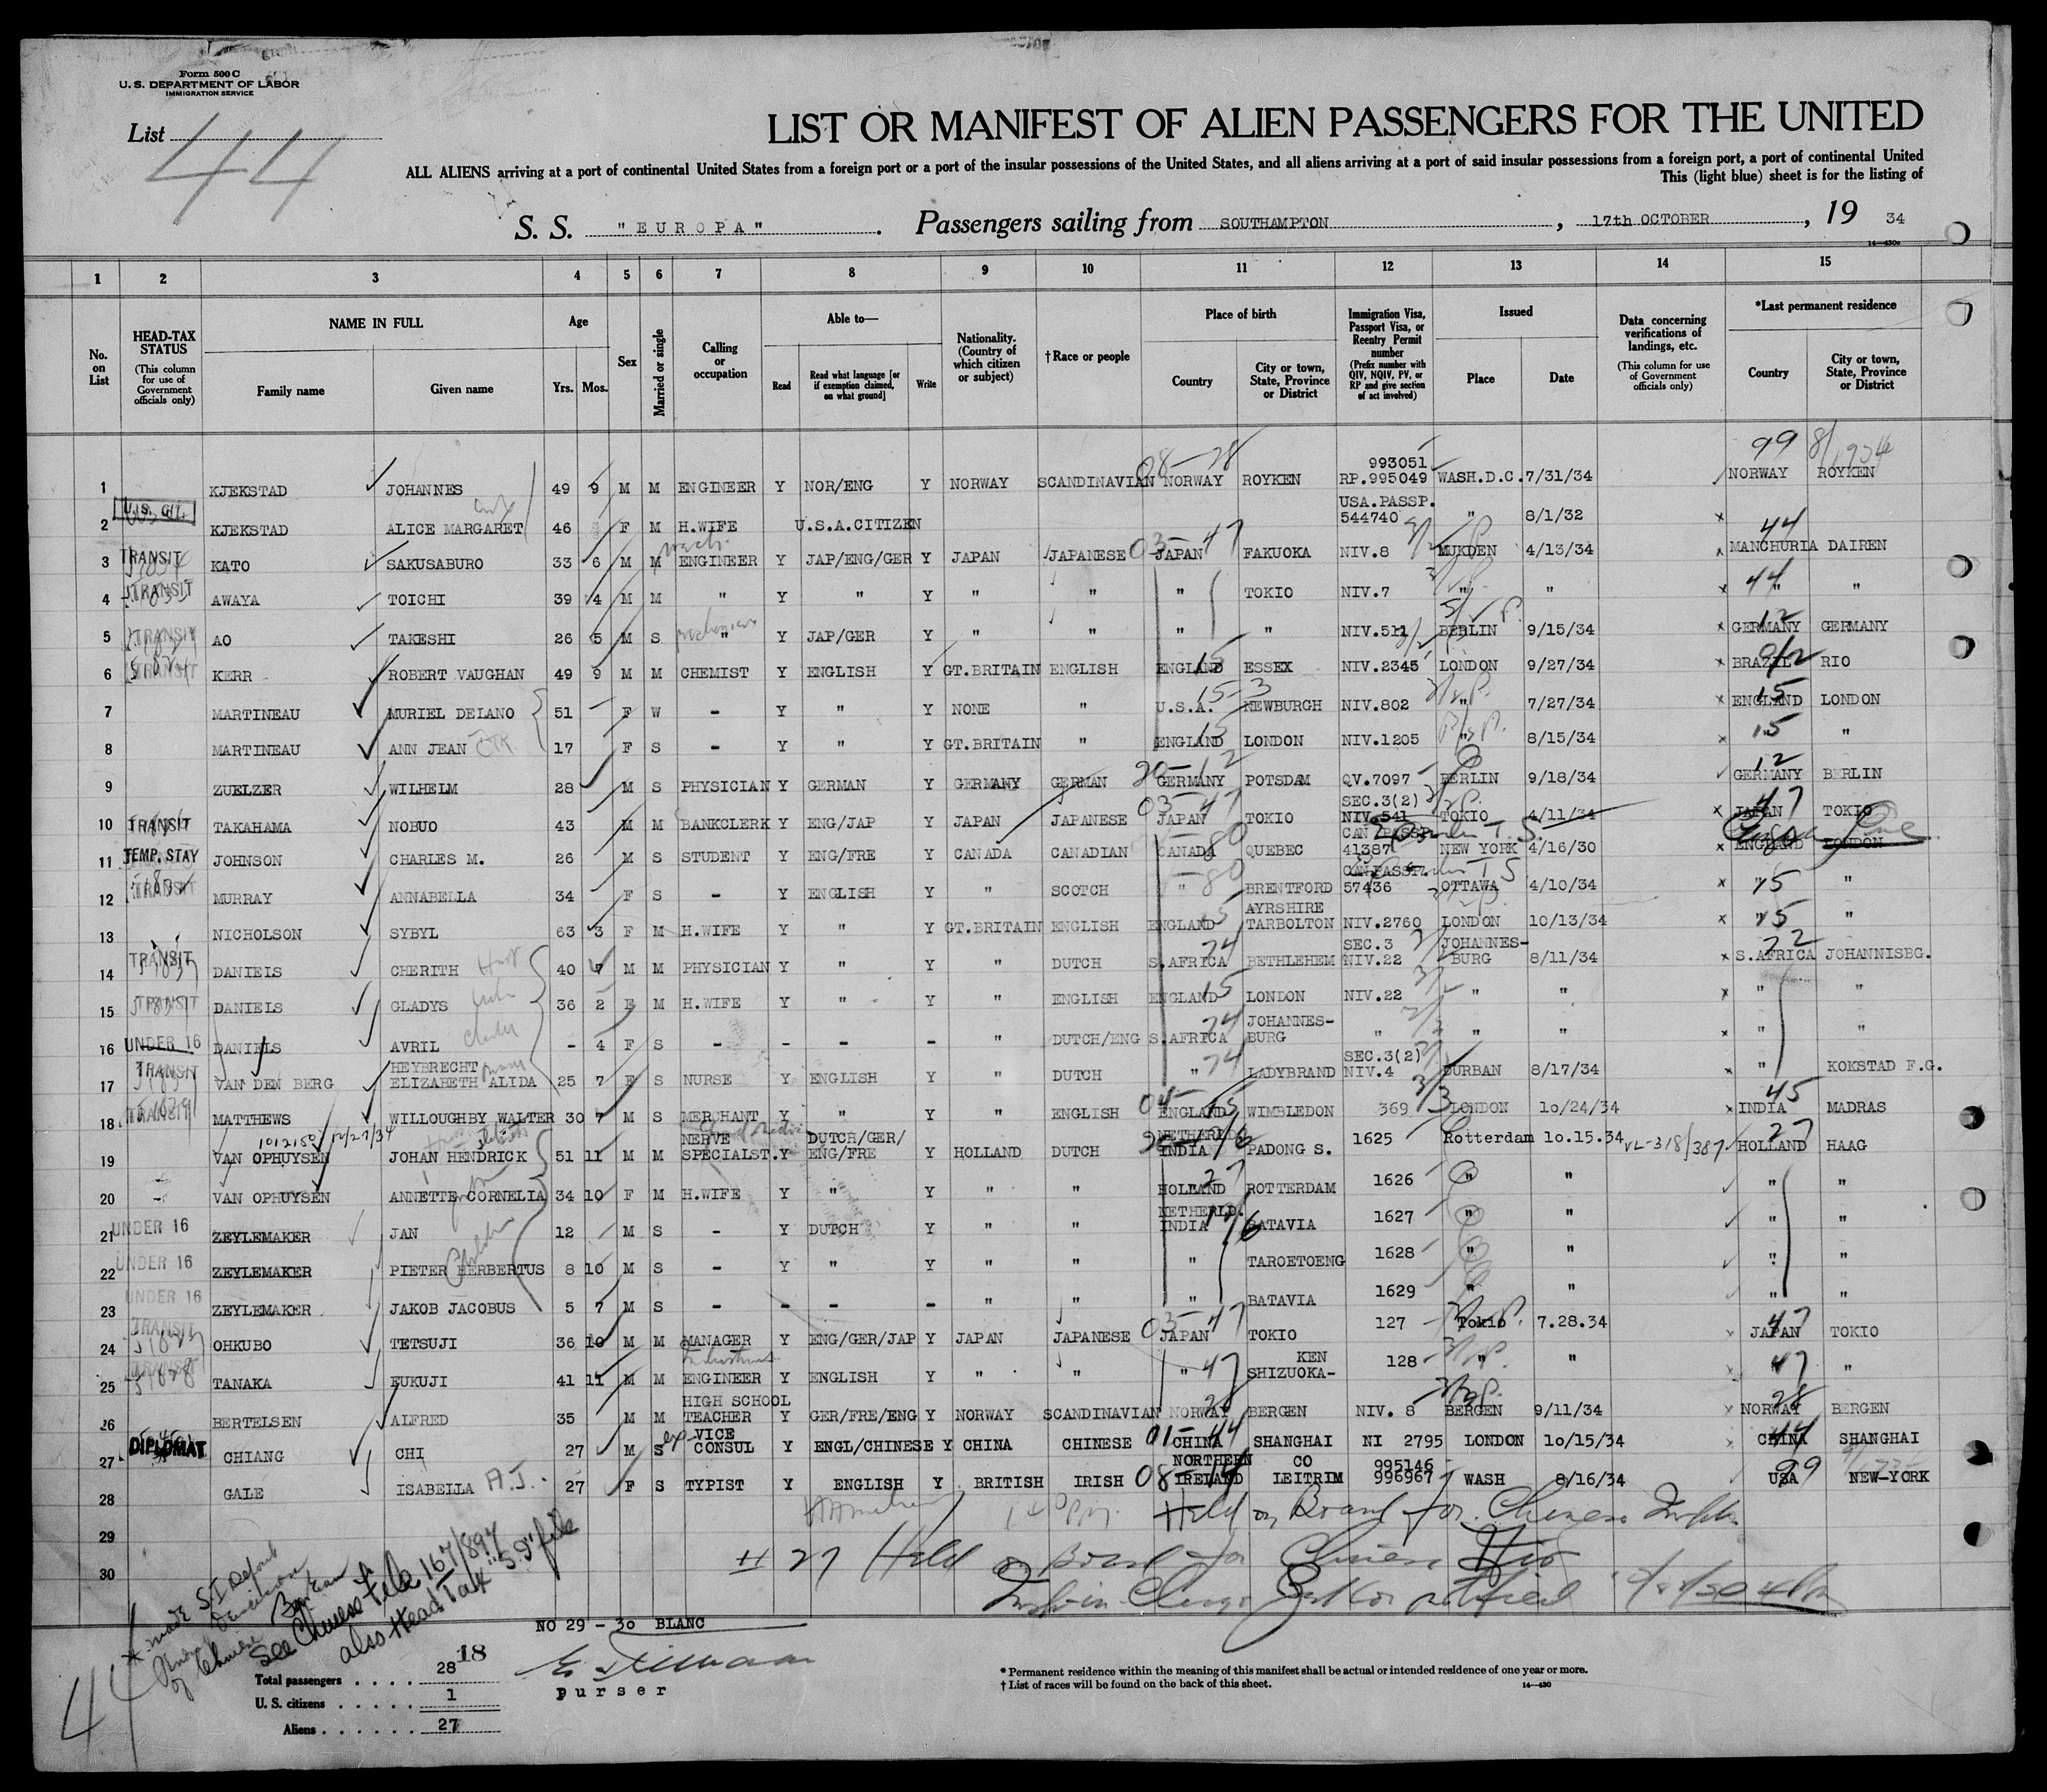 Form 500 C
U. S. DEPARTMENT OF LABOR
IMMIGRATION SERVICE
List 44
LIST OR MANIFEST OF ALIEN PASSENGERS FOR THE UNITED
ALL ALIENS arriving at a port of continental United States from a foreign port or a port of the insular possessions of the United States, and all aliens arriving at a port of said insular possessions from a foreign port, a port of continental United
This (light blue) sheet is for the listing of
S. S. "EUROPA". Passengers sailing from SOUTHAMPTON, 17th OCTOBER, 19 34
14—430c
1 2 3 4 5 6 7 8 9 10 11 12 13 14 15
No. on List
HEAD-TAX STATUS (This column for use of Government officials only)
NAME IN FULL
Family name Given name
Age
Yrs. Mos.
Sex
Married or single
Calling or occupation
Able to—
Read Read what language [or if exemption claimed, on what ground] Write
Nationality. (Country of which citizen or subject)
† Race or people
Place of birth
Country City or town, State, Province or District
Immigration Visa, Passport Visa, or Reentry Permit number (Prefix number with QIV, NQIV, PV, or RP and give section of act involved)
Issued
Place Date
Data concerning verifications of landings, etc. (This column for use of Government officials only)
*Last permanent residence
Country City or town, State, Province or District
99
08-28 993051
1 KJEKSTAD JOHANNES 49 9 M M ENGINEER Y NOR/ENG Y NORWAY SCANDINAVIAN NORWAY ROYKEN RP.995049 WASH.D.C. 7/31/34 NORWAY ROYKEN
U.S. CIT. USA.PASSP.
2 KJEKSTAD ALICE MARGARET 46 F M H.WIFE U.S.A.CITIZEN 544740 " 8/1/32 x
44
3 TRANSIT KATO SAKUSABURO 33 6 M M ENGINEER Y JAP/ENG/GER Y JAPAN JAPANESE 03-47 JAPAN FAKUOKA NIV.8 MUKDEN 4/13/34 x MANCHURIA DAIREN
4 TRANSIT AWAYA TOICHI 39 4 M M " Y " Y " " " TOKIO NIV.7 " " x 44 " "
5 TRANSIT AO TAKESHI 26 5 M S " Y JAP/GER Y " " " " NIV.511 BERLIN 9/15/34 x 12 GERMANY GERMANY
6 TRANSIT KERR ROBERT VAUGHAN 49 9 M M CHEMIST Y ENGLISH Y GT.BRITAIN ENGLISH 15 ENGLAND ESSEX NIV.2345 LONDON 9/27/34 x BRAZIL RIO
7 MARTINEAU MURIEL DELANO 51 F W - Y " Y NONE " 15-3 U.S.A. NEWBURGH NIV.802 " 7/27/34 x 15 ENGLAND LONDON
8 MARTINEAU ANN JEAN 17 F S - Y " Y GT.BRITAIN " 15 ENGLAND LONDON NIV.1205 " 8/15/34 x 15 " "
9 ZUELZER WILHELM 28 M S PHYSICIAN Y GERMAN Y GERMANY GERMAN 20-12 GERMANY POTSDAM QV.7097 BERLIN 9/18/34 12 GERMANY BERLIN
SEC.3(2)
10 TRANSIT TAKAHAMA NOBUO 43 M M BANKCLERK Y ENG/JAP Y JAPAN JAPANESE 03-47 JAPAN TOKIO NIV.541 TOKIO 4/11/34 x 47 JAPAN TOKIO
CAN PASSP.
11 TEMP. STAY JOHNSON CHARLES M. 26 M S STUDENT Y ENG/FRE Y CANADA CANADIAN 80 CANADA QUEBEC 41387 NEW YORK 4/16/30 x ENGLAND LONDON
CAN PASSP.
12 TRANSIT MURRAY ANNABELLA 34 F S - Y ENGLISH Y " SCOTCH 80 " BRENTFORD 57436 OTTAWA 4/10/34 x 15 " "
AYRSHIRE
13 NICHOLSON SYBYL 63 3 F M H.WIFE Y " Y GT.BRITAIN ENGLISH 15 ENGLAND TARBOLTON NIV.2760 LONDON 10/13/34 x 15 " "
SEC.3 JOHANNES-
14 TRANSIT DANIELS CHERITH 40 7 M M PHYSICIAN Y " Y " DUTCH 74 S.AFRICA BETHLEHEM NIV.22 BURG 8/11/34 x S.AFRICA JOHANNISBG.
15 TRANSIT DANIELS GLADYS 36 2 F M H.WIFE Y " Y " ENGLISH 15 ENGLAND LONDON NIV.22 " " x " "
JOHANNES-
16 UNDER 16 DANIELS AVRIL - 4 F S - - - - " DUTCH/ENG 74 S.AFRICA BURG " " " x " "
HEYBRECHT SEC.3(2)
17 TRANSIT VAN DEN BERG ELIZABETH ALIDA 25 7 F S NURSE Y ENGLISH Y " DUTCH 74 " LADYBRAND NIV.4 DURBAN 8/17/34 x " KOKSTAD F.G.
18 TRANSIT MATTHEWS WILLOUGHBY WALTER 30 7 M S MERCHANT Y " Y " ENGLISH 04-15 ENGLAND WIMBLEDON 369 LONDON 10/24/34 x 45 INDIA MADRAS
NERVE DUTCH/GER/ NETHERLD.
19 VAN OPHUYSEN JOHAN HENDRICK 51 11 M M SPECIALST. Y ENG/FRE Y HOLLAND DUTCH INDIA PADONG S. 1625 Rotterdam 10.15.34 VL-318/387 27 HOLLAND HAAG
20 VAN OPHUYSEN ANNETTE CORNELIA 34 10 F M H.WIFE Y " Y " " 27 HOLLAND ROTTERDAM 1626 " " " "
NETHERLD.
21 UNDER 16 ZEYLEMAKER JAN 12 M S - Y DUTCH Y " " INDIA BATAVIA 1627 " " " "
22 UNDER 16 ZEYLEMAKER PIETER HERBERTUS 8 10 M S - Y " Y " " " TAROETOENG 1628 " " " "
Children
23 UNDER 16 ZEYLEMAKER JAKOB JACOBUS 5 7 M S - - - - " " " BATAVIA 1629 " " " "
24 TRANSIT OHKUBO TETSUJI 36 10 M M MANAGER Y ENG/GER/JAP Y JAPAN JAPANESE 03-47 JAPAN TOKIO 127 Tokio 7.28.34 x 47 JAPAN TOKIO
KEN
25 TRANSIT TANAKA FUKUJI 41 11 M M ENGINEER Y ENGLISH Y " " " 47 SHIZUOKA- 128 " " x 47 "
HIGH SCHOOL
26 BERTELSEN ALFRED 35 M M TEACHER Y GER/FRE/ENG Y NORWAY SCANDINAVIAN 28 NORWAY BERGEN NIV. 8 BERGEN 9/11/34 x 28 NORWAY BERGEN
VICE
27 DIPLOMAT CHIANG CHI 27 M S CONSUL Y ENGL/CHINESE Y CHINA CHINESE 01-44 CHINA SHANGHAI NI 2795 LONDON 10/15/34 x 44 CHINA SHANGHAI
NORTHERN CO 995146
28 GALE ISABELLA A.J. 27 F S TYPIST Y ENGLISH Y BRITISH IRISH 08-14 IRELAND LEITRIM 996967 WASH 8/16/34 99 USA NEW-YORK
Held on Board for Chinese
29
# 27 Held on Board for Chinese
30
See Chinese File 167/897
also Head Tax "55" file
NO 29 - 30 BLANC
Total passengers 28 18
U. S. citizens 1
Aliens 27
purser
* Permanent residence within the meaning of this manifest shall be actual or intended residence of one year or more.
† List of races will be found on the back of this sheet. 14—430
44